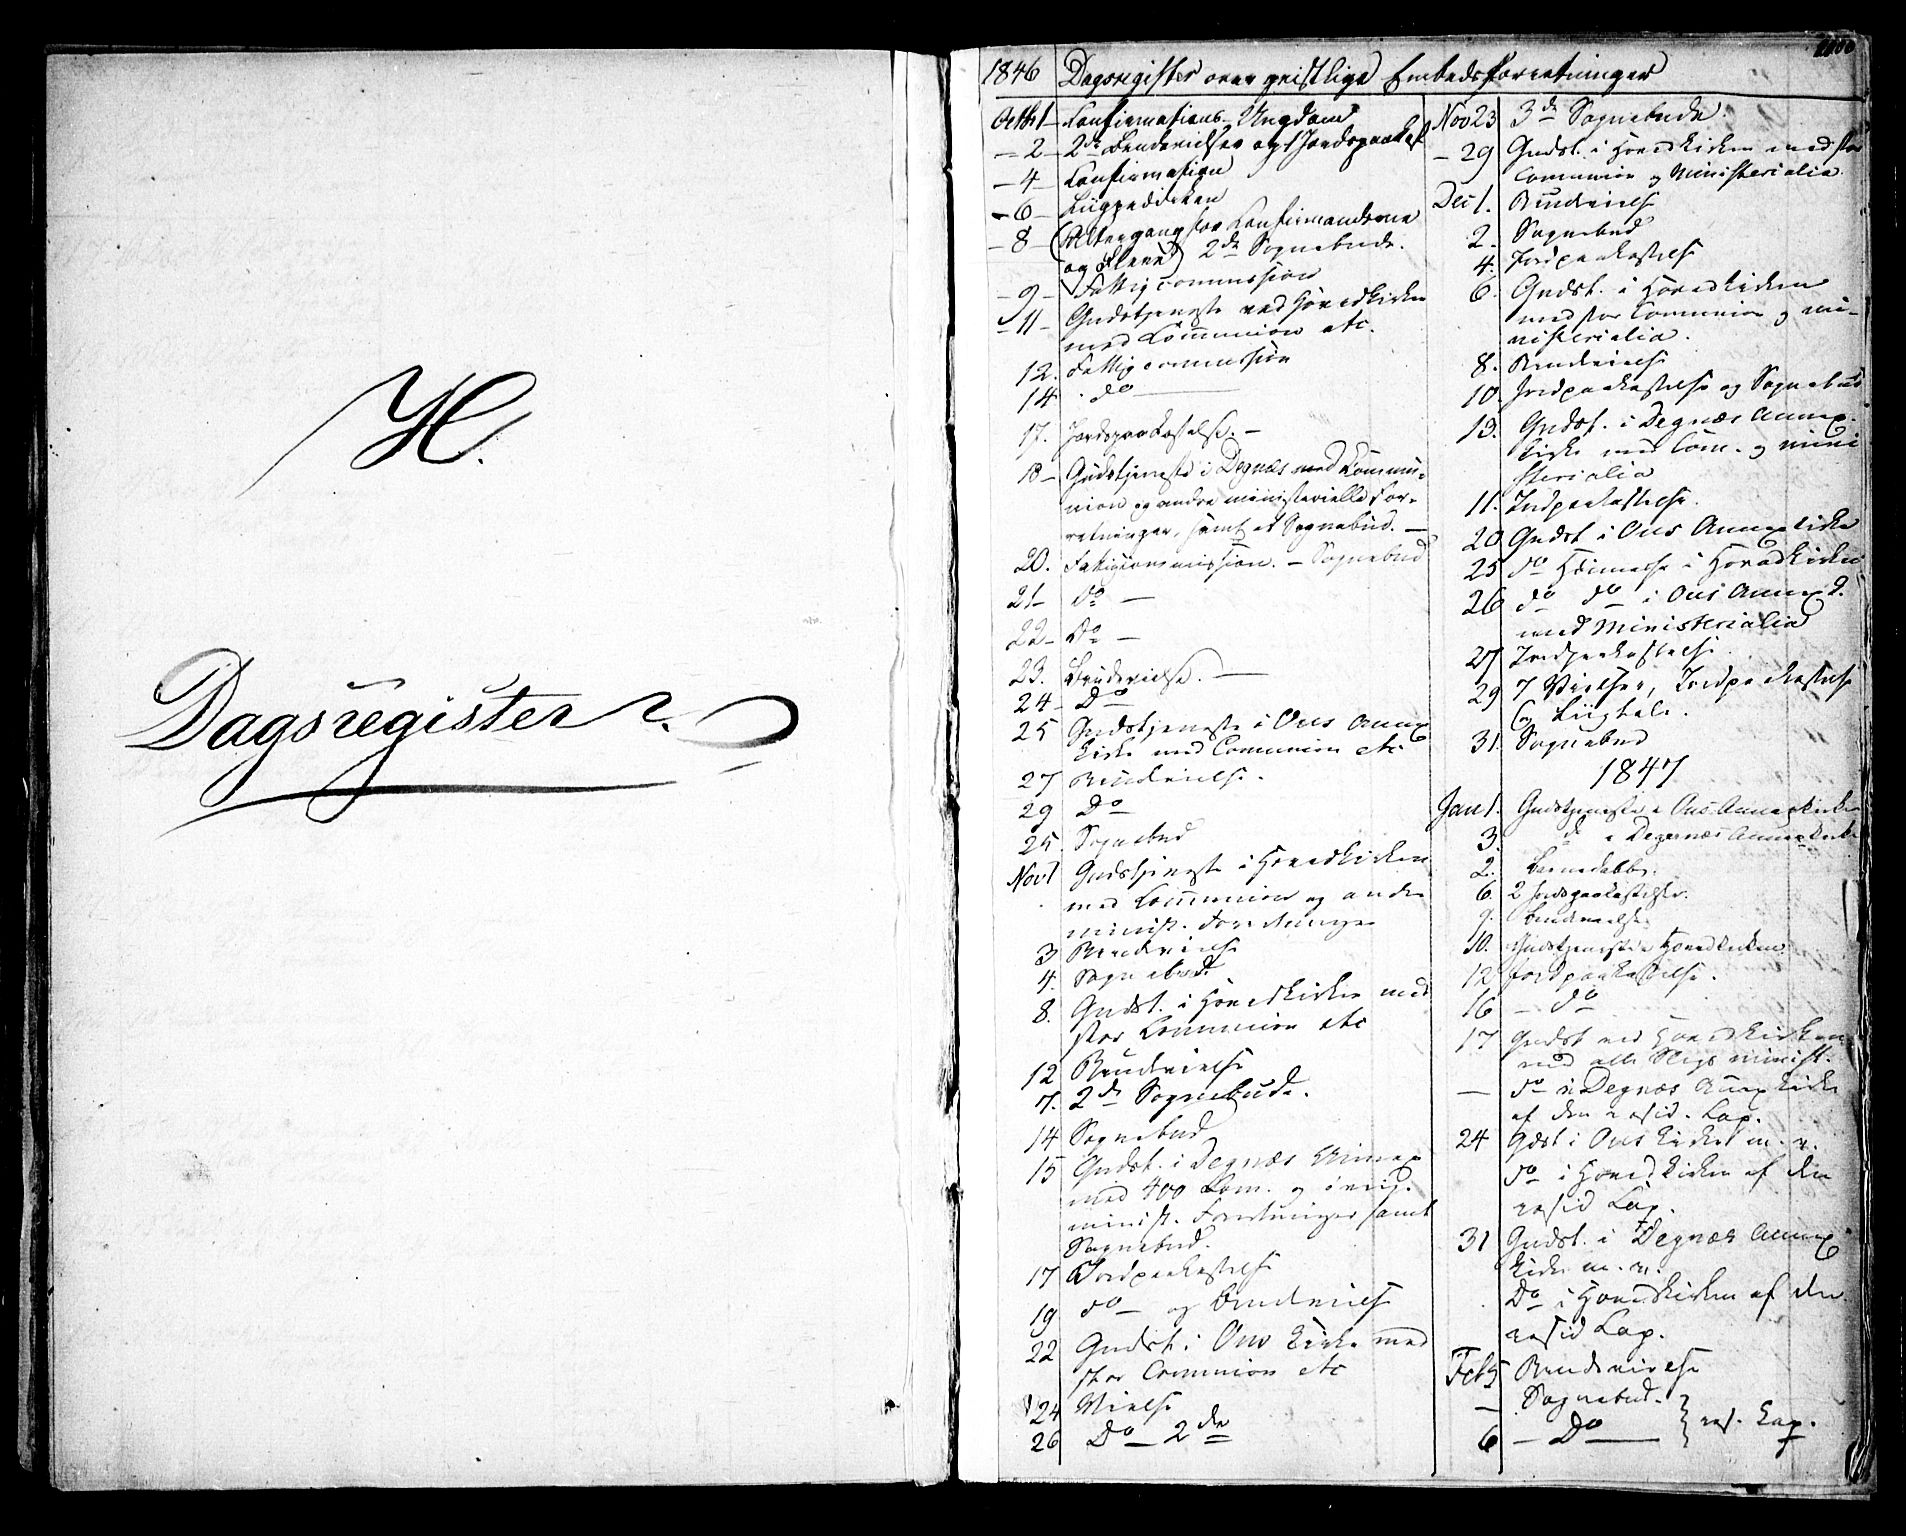 H.
Dagsregister
1846 Dagsregister over geistlige Embedsforretninger
Octbr 1 Confirmations-Ungdom
- 2 - 2de Brudevielser og 1 Jordpaakast
- 4 - Confirmation
- 6 -
- 8 - (Altergang for Confirmanderne
og Flere) 2de Sognebude.
- 9 - Fattigcommission
- 11 - Gudstjeneste ved Hovedkirken
med Communion etc.
12. Fattigcommission
14. do
17. Jordspaakastelse. -
18 - Gudstjeneste i Degnæs med Commu-
nion og andre ministerielle For-
retninger, samt et Sognebud. -
20. Fattigcommission. - Sognebud
21 - do -
22 - Do -
23. Brudevielse. -
24 - Do
25 Gudstjeneste i Ous Annex
Kirke med Communion etc
27 Brudevielse.
29 Do
25 Sognebud
Nov 1 Gudstjeneste i Hovedkirken
med Communion og andre
minist. Forretninger
3 Brudevielse
4. Sognebud
8. Gudst. i Hovedkirken med
stor Communion etc
12 Brudevielse
7. 2de Sognebude.
14 Sognebud
15 Gudst. i Degnæs Annex
med 400 Com. og øvrig.
minist. Forretninger samt
Sognebud.
17 Jordpaakastelse
19 do og Brudevielse
22 Gudst. i Ous Kirke med
stor Communion etc
24 Vielse
26 Do - 2de
Nov 23 3de Sognebude.
- 29 Gudst. i Hovedkirken med stor
Communion og Ministerialia.
Dec 1. Brudevielse
2. Sognebud
4. Jordpaakastelse
6. Gudst. i Hovedkirken
med stor Communion og mi-
nisterialia.
8. Brudevielse
10. Jordpaakastelse og Sognebud
13. Gudst. i Degnæs Annex
Kirke med Com. og mini
sterialia
11. Jordpaakastelse.
20 Gudst i Ous Annexkirke
25 do Høimesse i Hovedkirken
26 do do i Ous Annex K.
med Ministerialia
27 Jordpaakastelse.
29 7 Vielser, Jordpaakastelse
og Liigtale.
31. Sognebud
1847
Jan 1. Gudstjeneste i Ous Annexkirke
3. do i Degernæs Annexkirke
2. Barnedaab
6. 2 Jordspaakastelser.
9. Brudevielse
10. Gudstjeneste i Hovedkirken
12 Jordpaakastelse.
16 - do
17 Gudst ved Hovedkirken
med alle Slags minist.
- do i Degnæs Annexkirke
af den resid. Cap.
24 Gdst i Ous Kirke m. v.
do i Hovedkirken af den
resid Cap.
31 Gudst. i Degnæs Annex
Kirke m. v.
Do i Hovedkirken af den
resid Cap.
Feb 5 Brudevielse
- Sognebud.
6 - Do - } res. Cap.